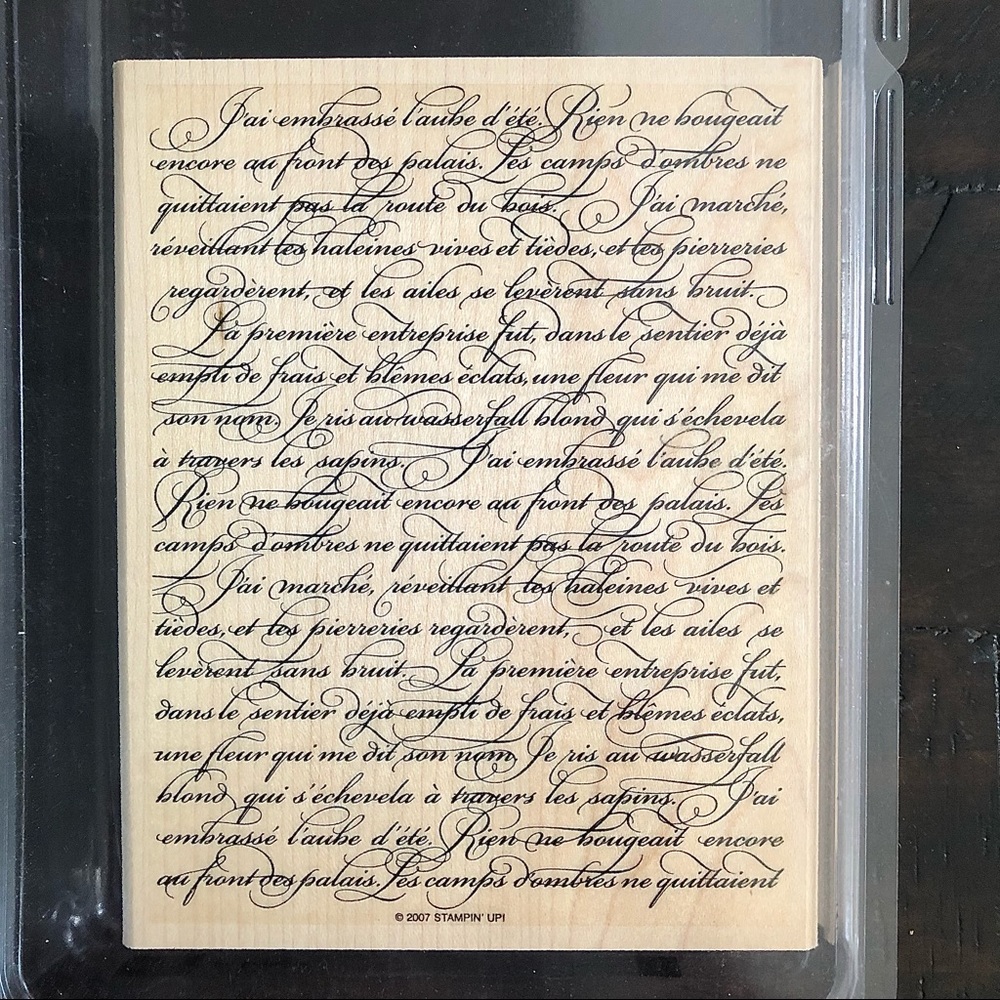 J'ai embrassé l'aube d'été. Rien ne bougeait
encore au front des palais. Les camps d'ombres ne
quittaient pas la route du bois. J'ai marché,
réveillant les haleines vives et tièdes, et les pierreries
regardèrent, et les ailes se levèrent sans bruit.
La première entreprise fut, dans le sentier déjà
empli de frais et blêmes éclats, une fleur qui me dit
son nom. Je ris au wasserfall blond qui s'échevela
à travers les sapins. J'ai embrassé l'aube d'été.
Rien ne bougeait encore au front des palais. Les
camps d'ombres ne quittaient pas la route du bois.
J'ai marché, réveillant les haleines vives et
tièdes, et les pierreries regardèrent, et les ailes se
levèrent sans bruit. La première entreprise fut,
dans le sentier déjà empli de frais et blêmes éclats,
une fleur qui me dit son nom. Je ris au wasserfall
blond qui s'échevela à travers les sapins. J'ai
embrassé l'aube d'été. Rien ne bougeait encore
au front des palais. Les camps d'ombres ne quittaient
© 2007 STAMPIN' UP!